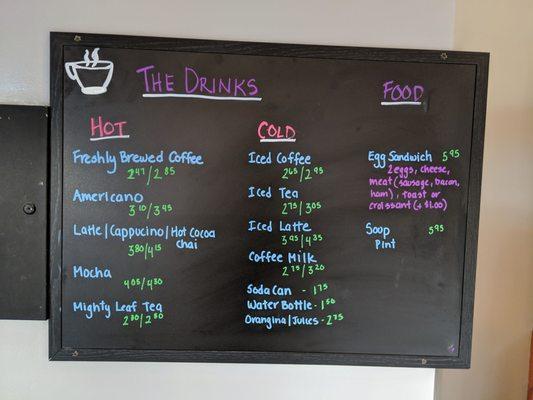 The Drinks
Hot
Freshly Brewed Coffee
2.47/2.85
Americano
3.10/3.45
Latte/Cappucino/Hot Cocoa
chai
3.80/4.15
Mocha
4.05/4.50
Mighty Leaf Tea
2.50/2.80
Cold
Iced Coffee
2.65/2.95
Iced Tea
2.75/3.05
Iced Latte
3.95/4.35
Coffee Milk
2.75/3.20
Soda Can - 1.75
Water Bottle - 1.50
Orangina/Juices - 2.75
Food
Egg Sandwich 5.95
2 eggs, cheese,
meat (sausage, bacon,
ham), toast or
croissant (+ $1.00)
Soup 5.95
Pint